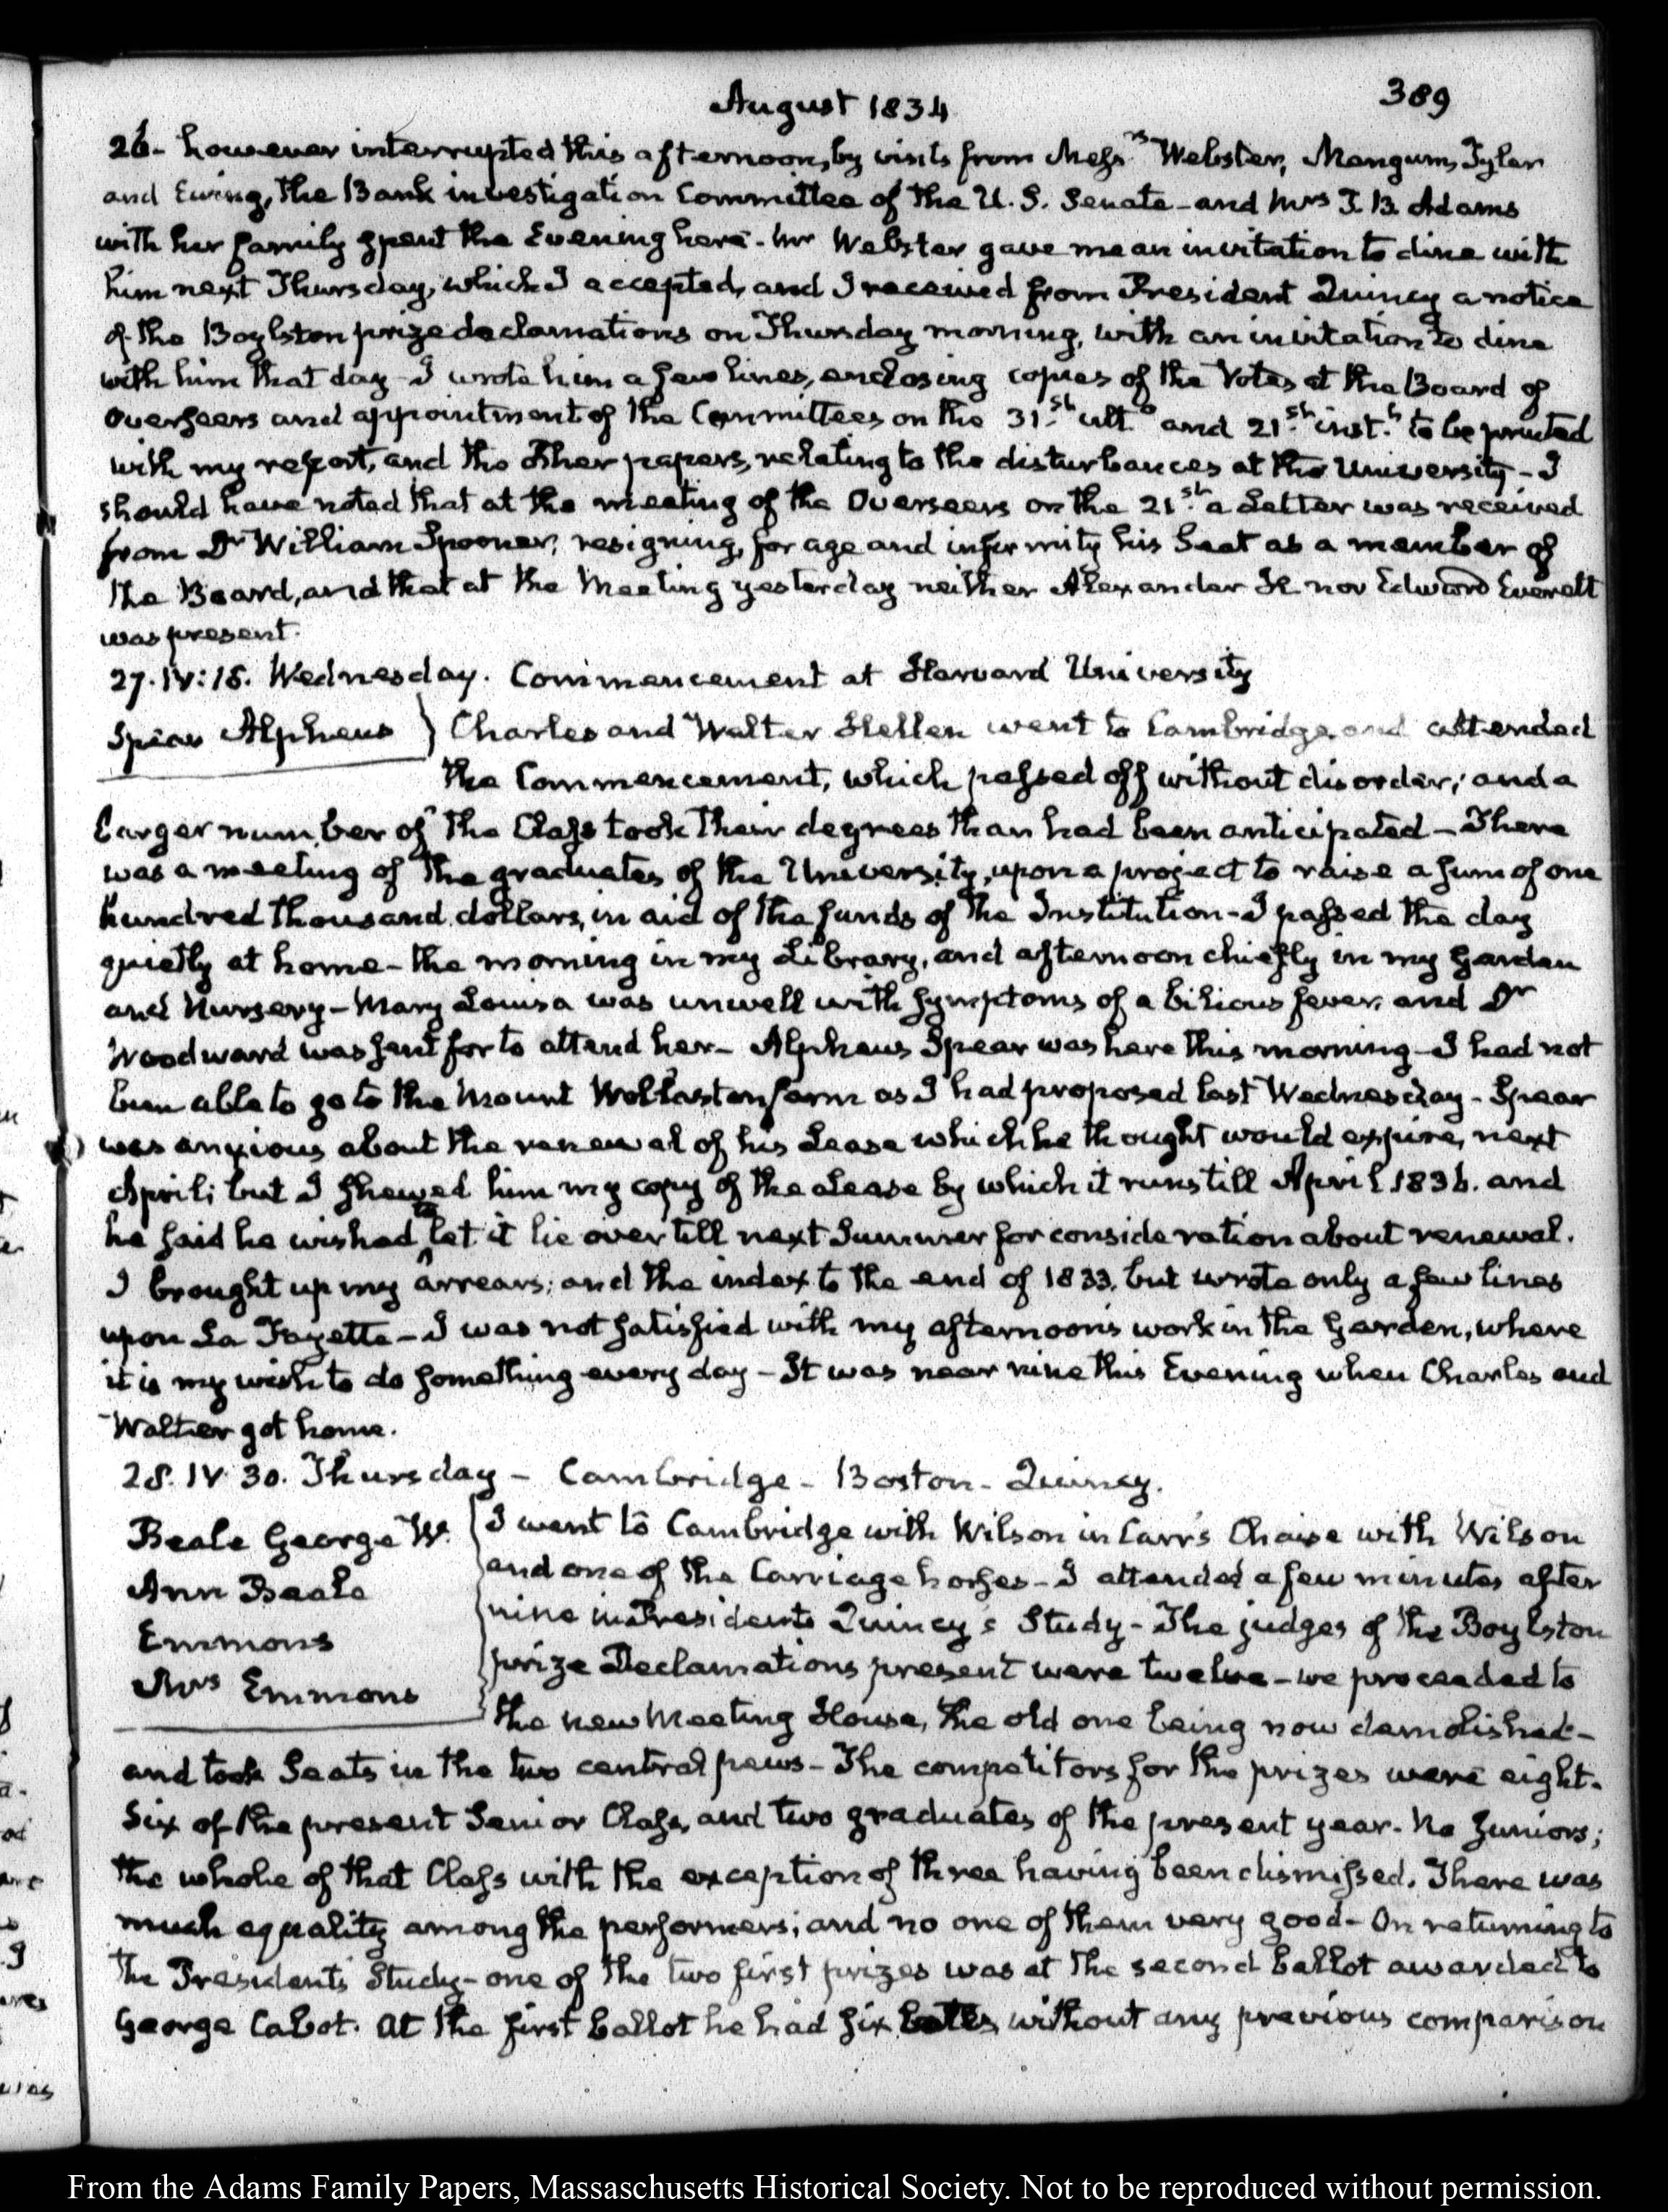 August 1834
389
26- however interrupted this afternoon, by visits from Messrs Webster, Mangum, Tyler
and Ewing, the Bank investigation Committee of the U.S. Senate - and Mrs T. B. Adams
with her family spent the Evening here - Mr Webster gave me an invitation to dine with
him next Thursday, which I accepted, and I received from President Quincy a notice
of the Boylston prize declamations on Thursday morning, with an invitation to dine
with him that day - I wrote him a few lines, enclosing copies of the Votes at the Board of
Overseers and appointment of the Committees on the 31.st ulto and 21.st inst.t to be printed
with my report, and the other papers, relating to the disturbances at the University - I
should have noted that at the meeting of the Overseers on the 21.st a Letter was received
from Dr William Spooner, resigning, for age and infirmity his Seat as a member of
the Board, and that at the Meeting yesterday neither Alexander H. nor Edward Everett
was present.
27. IV:15. Wednesday. Commencement at Harvard University
Spear Alpheus } Charles and Walter Hellen went to Cambridge and attended
the Commencement, which passed off without disorder; and a
larger number of the Class took their degrees than had been anticipated - There
was a meeting of the graduates of the University, upon a project to raise a sum of one
hundred thousand dollars, in aid of the funds of the Institution - I passed the day
quietly at home - the morning in my Library, and afternoon chiefly in my Garden
and Nursery - Mary Louisa was unwell with symptoms of a bilious fever, and Dr
Woodward was sent for to attend her - Alpheus Spear was here this morning - I had not
been able to go to the Mount Wollaston farm as I had proposed last Wednesday - Spear
was anxious about the renewal of his Lease which he thought would expire, next
April; but I shewed him my copy of the Lease by which it runs till April 1836. and
he said he wished to let it lie over till next Summer for consideration about renewal.
I brought up my arrears; and the index to the end of 1833, but wrote only a few lines
upon La Fayette - I was not satisfied with my afternoon's work in the Garden, where
it is my wish to do something every day - It was near nine this Evening when Charles and
Walter got home.
28. IV 30. Thursday - Cambridge - Boston - Quincy.
Beale George W. { I went to Cambridge with Wilson in Carr's Chaise with Wilson
Ann Beale and one of the Carriage horses - I attended a few minutes after
Emmons nine in Presidents Quincy's Study - The judges of the Boylston
Mrs Emmons prize Declamations present were twelve - we proceeded to
the new Meeting House, the old one being now demolished -
and took Seats in the two central pews - The competitors for the prizes were eight.
Six of the present Senior Class, and two graduates of the present year. No Juniors;
the whole of that Class with the exception of three having been dismissed. There was
much equality among the performers; and no one of them very good - On returning to
the Presidents Study - one of the two first prizes was at the second ballot awarded to
George Cabot. At the first ballot he had six without any previous comparison
From the Adams Family Papers, Massachusetts Historical Society. Not to be reproduced without permission.